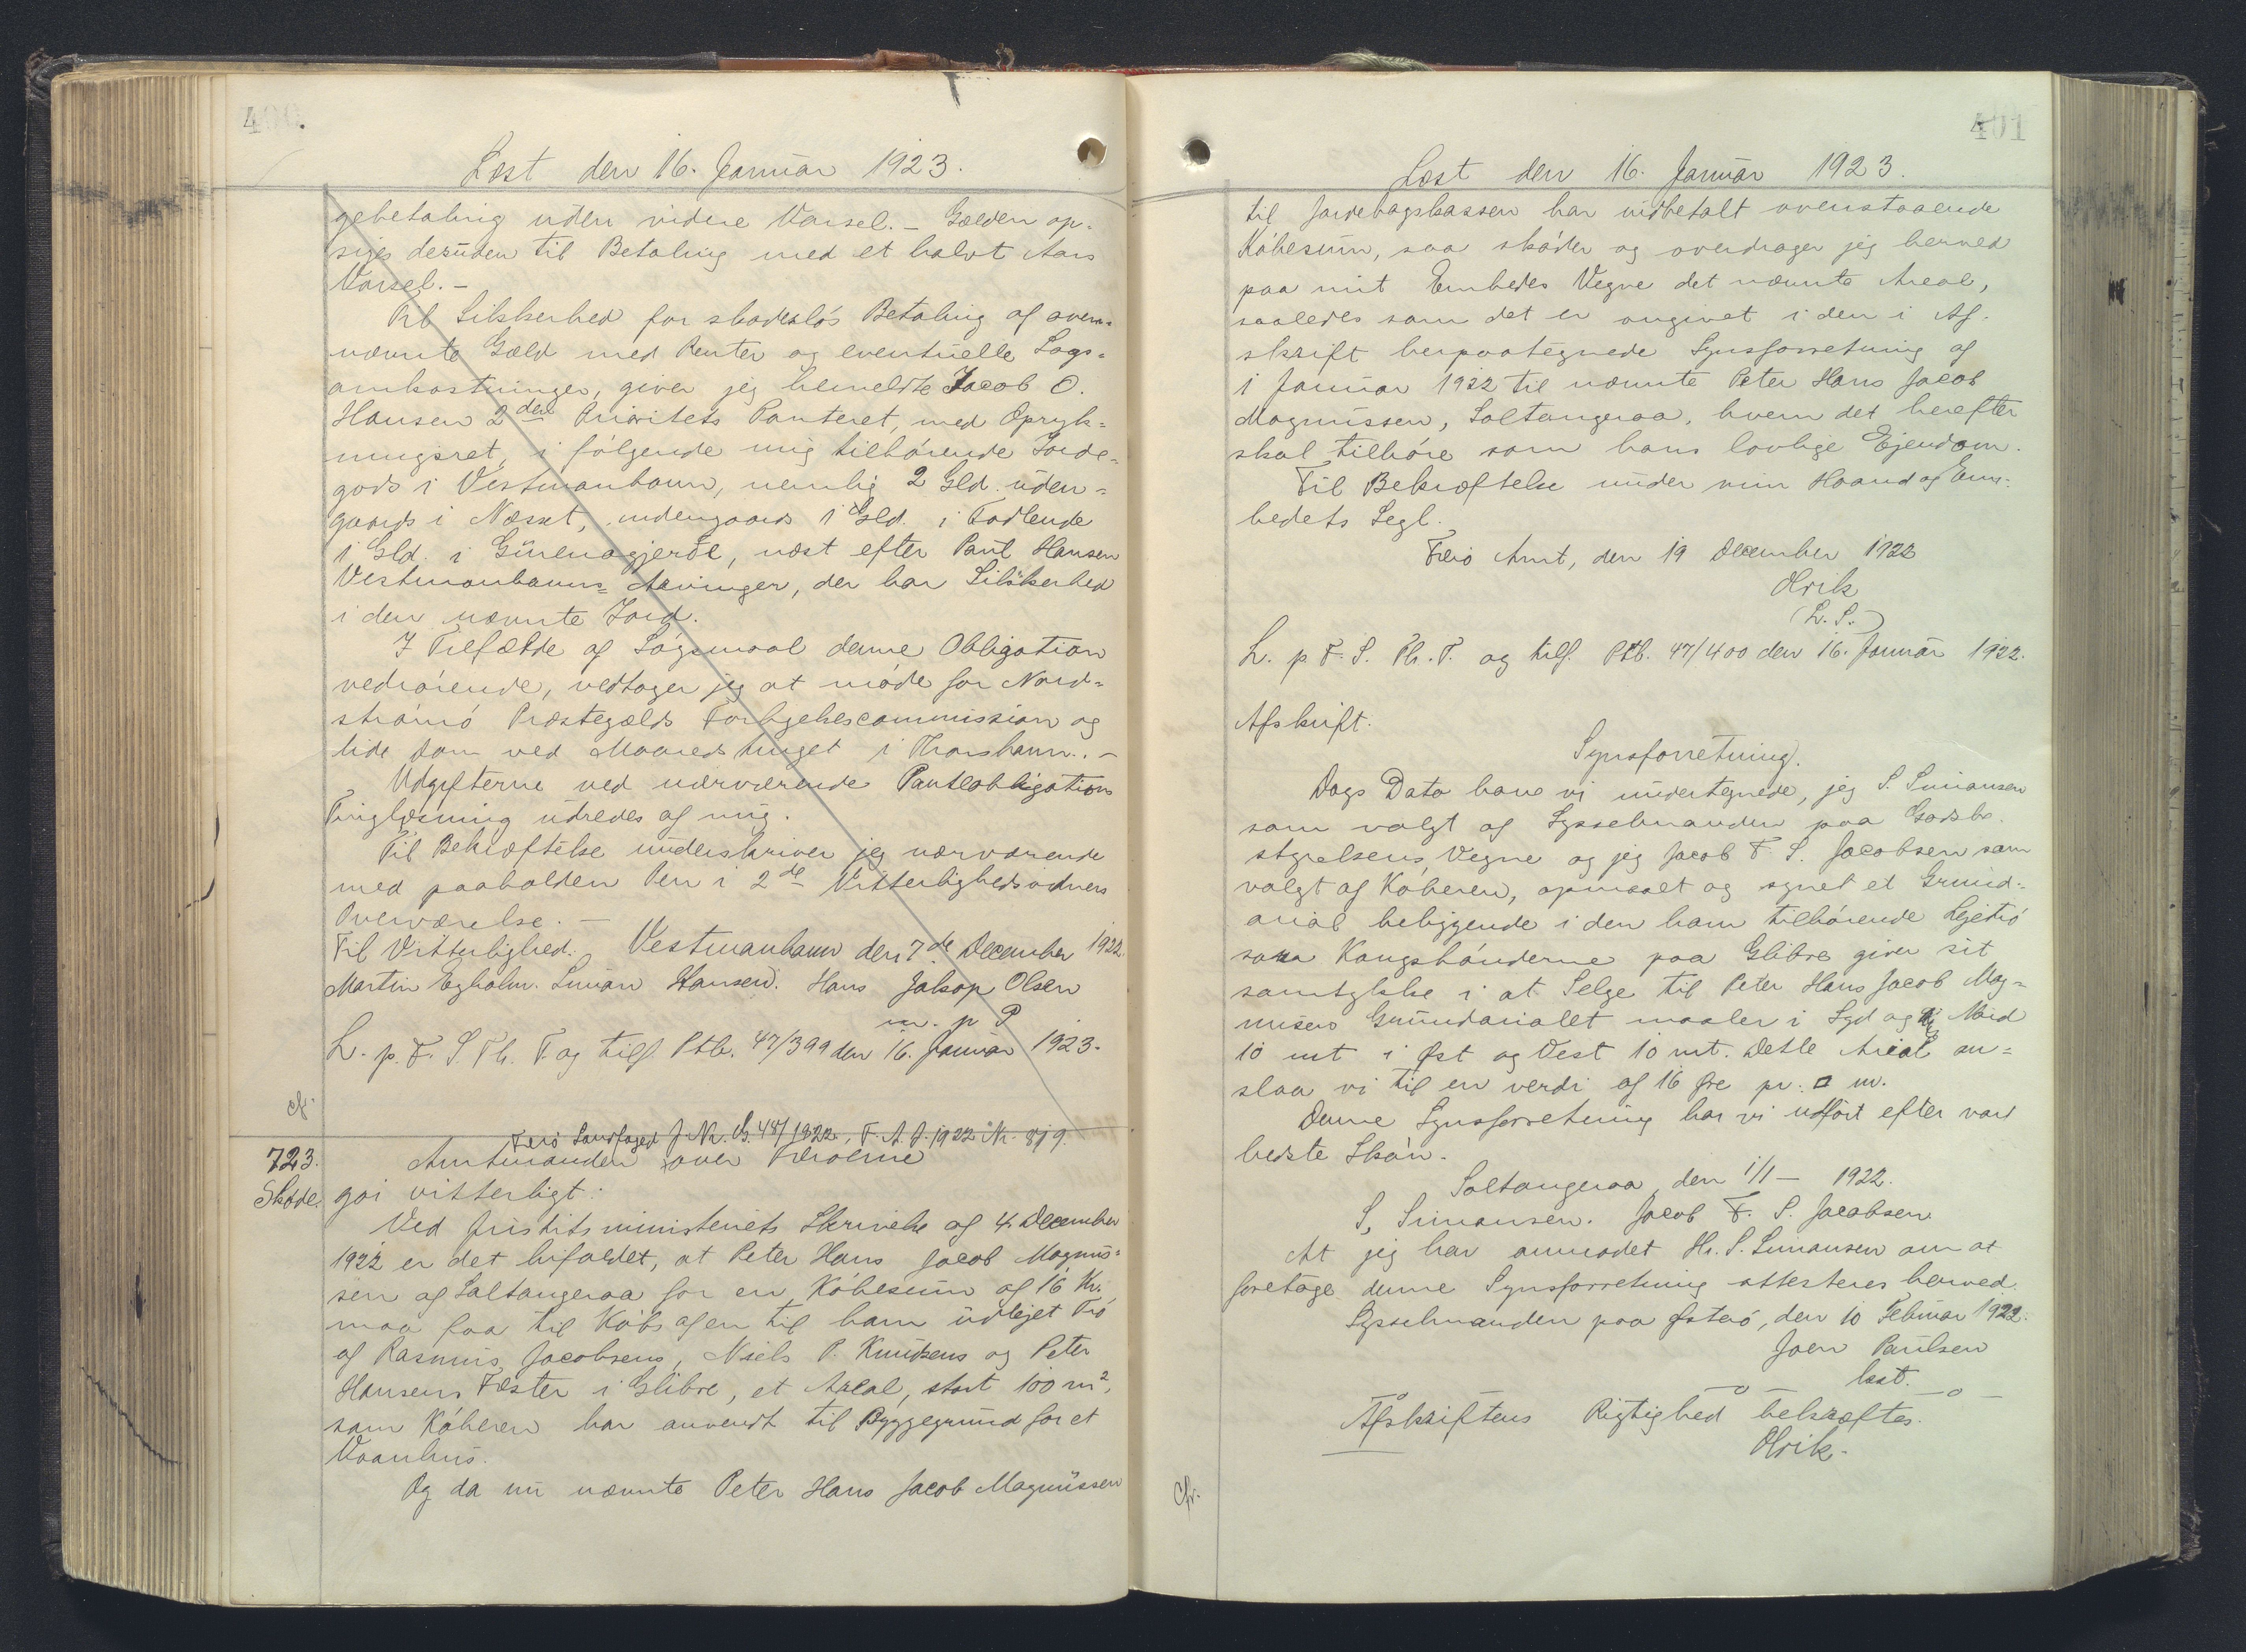 400.
Læst den 16. Januar 1923.
gebetaling uden videre Varsel. – Gælden op-
siges desuden til Betaling med et halvt Aars
Varsel. –
Til Sikkerhed for skadesløs Betaling af oven-
nævnte Gæld med Renter og eventuelle Sags-
omkostninger, giver jeg bemeldte Jacob O.
Hansen 2den Prioritets Panteret, med Opryk-
ningsret, i følgende mig tilhørende Jorde-
gods i Vestmanhavn, nemlig 2 Gld. uden-
gaards i Næsset, indengaards 1 Gld. i
1 Gld. i, næst efter Paul Hansen
Vestmanhavns Arvinger, der har Sikkerhed
i den nævnte Jord.
I Tilfælde af Søgsmaal denne Obligation
vedrørende, vedtager jeg at møde for Nord-
strømø Præstegælds Forligelsescommission og
lide Dom ved Maanedstinget i Thorshavn. –
Udgifterne ved nærværende Panteobligations
Tinglæsning udredes af mig.
Til Bekræftelse underskriver jeg nærværende
med paaholden Pen i 2de Vitterlighedsvidners
Overværelse. –
Til Vitterlighed. Vestmanhavn den 7de December 1922.
Martin Egholm. Simun Hansen. Hans Jakop Olsen
m. p P
L. p. F. S. Th. T. og tilf. Ptb. 47/399 den 16. Januar 1923.
cfr.
Færø Landfoged J. Nr. G. 48/1922, F. A. J. 1922 Nr. 819.
723. Amtmanden over Færøerne
Skøde. gør vitterligt:
Ved Justitsministeriets Skrivelse af 4. December
1922 er det bifaldet, at Peter Hans Jacob Magnus-
sen af Saltangeraa for en Købesum af 16 Kr.
maa faa til Købs af en til ham udlejet Trø
af Rasmus Jacobsens, Niels P. Knudsens og Peter
Hansens Fæster i Glibre, et Areal, stort 100 m²,
som Køberen har anvendt til Byggegrund for et
Vaanhus.
Og da nu nævnte Peter Hans Jacob Magnussen
401
Læst den 16. Januar 1923.
til Jordebogskassen har indbetalt ovenstaaende
Købesum, saa skøder og overdrager jeg herved
paa mit Embedes Vegne det nævnte Areal,
saaledes som det er angivet i den i Af-
skrift herpaategnede Synsforretning af
1 Januar 1922 til nævnte Peter Hans Jacob
Magnussen, Saltangeraa, hvem det herefter
skal tilhøre som hans lovlige Ejendom.
Til Bekræftelse under min Haand og Em-
bedets Segl.
Færø Amt, den 19 December 1922
Olrik
(L. S.)
L. p F. S. Th. T. og tilf. Ptb. 47/400 den 16. Januar 1922.
Afskrift.
Synsforretning.
Dags Dato have vi undertegnede, jeg S. Simonsen
som valgt af Sysselmanden paa Godsbe-
styrelsens Vegne og jeg Jacob F. S. Jacobsen som
valgt af Køberen, opmaalt og synet et Grund-
arial beliggende i den ham tilhørende Lejetrø
som Kongsbønderne paa Glibre giver sit
samtykke i at Selge til Peter Hans Jacob Mag-
nusens Grundarialet maaler i Syd og Nord
10 mt i Øst og Vest 10 mt. Dette Areal an-
slaa vi til en verdi af 16 Øre pr. □ m.
Denne Synsforretning har vi udført efter vort
bedste Skøn.
Saltangeraa, den 1/1 – 1922.
S, Simonsen. Jacob F. S. Jacobsen
At jeg har anmodet Hr. S. Simonsen om at
foretage denne Synsforretning attesteres herved.
Sysselmanden paa Østerø, den 10 Februar 1922.
Joen Paulsen
kst.
Afskriftens Rigtighed bekræftes.
Olrik.
cfr.